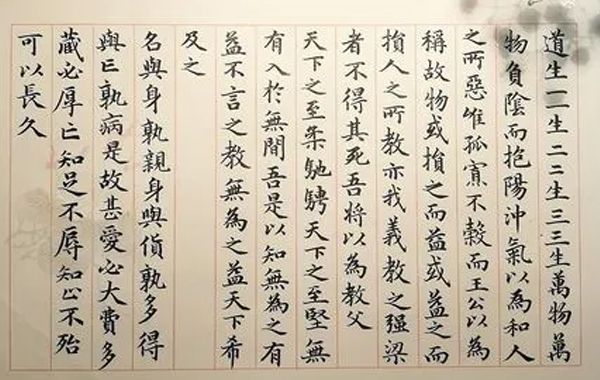 道生一一生二二生三三生萬物萬
物負陰而抱陽沖氣以為和人
之所惡唯孤寡不穀而王公以為
稱故物或損之而益或益之而
損人之所教亦我義教之强梁
者不得其死吾將以為教父
天下之至柔馳騁天下之至堅無
有入於無間吾是以知無為之有
益不言之教無為之益天下希
及之
名與身孰親身與貨孰多得
與亡孰病是故甚愛必大費多
藏必厚亡知足不辱知止不殆
可以長久